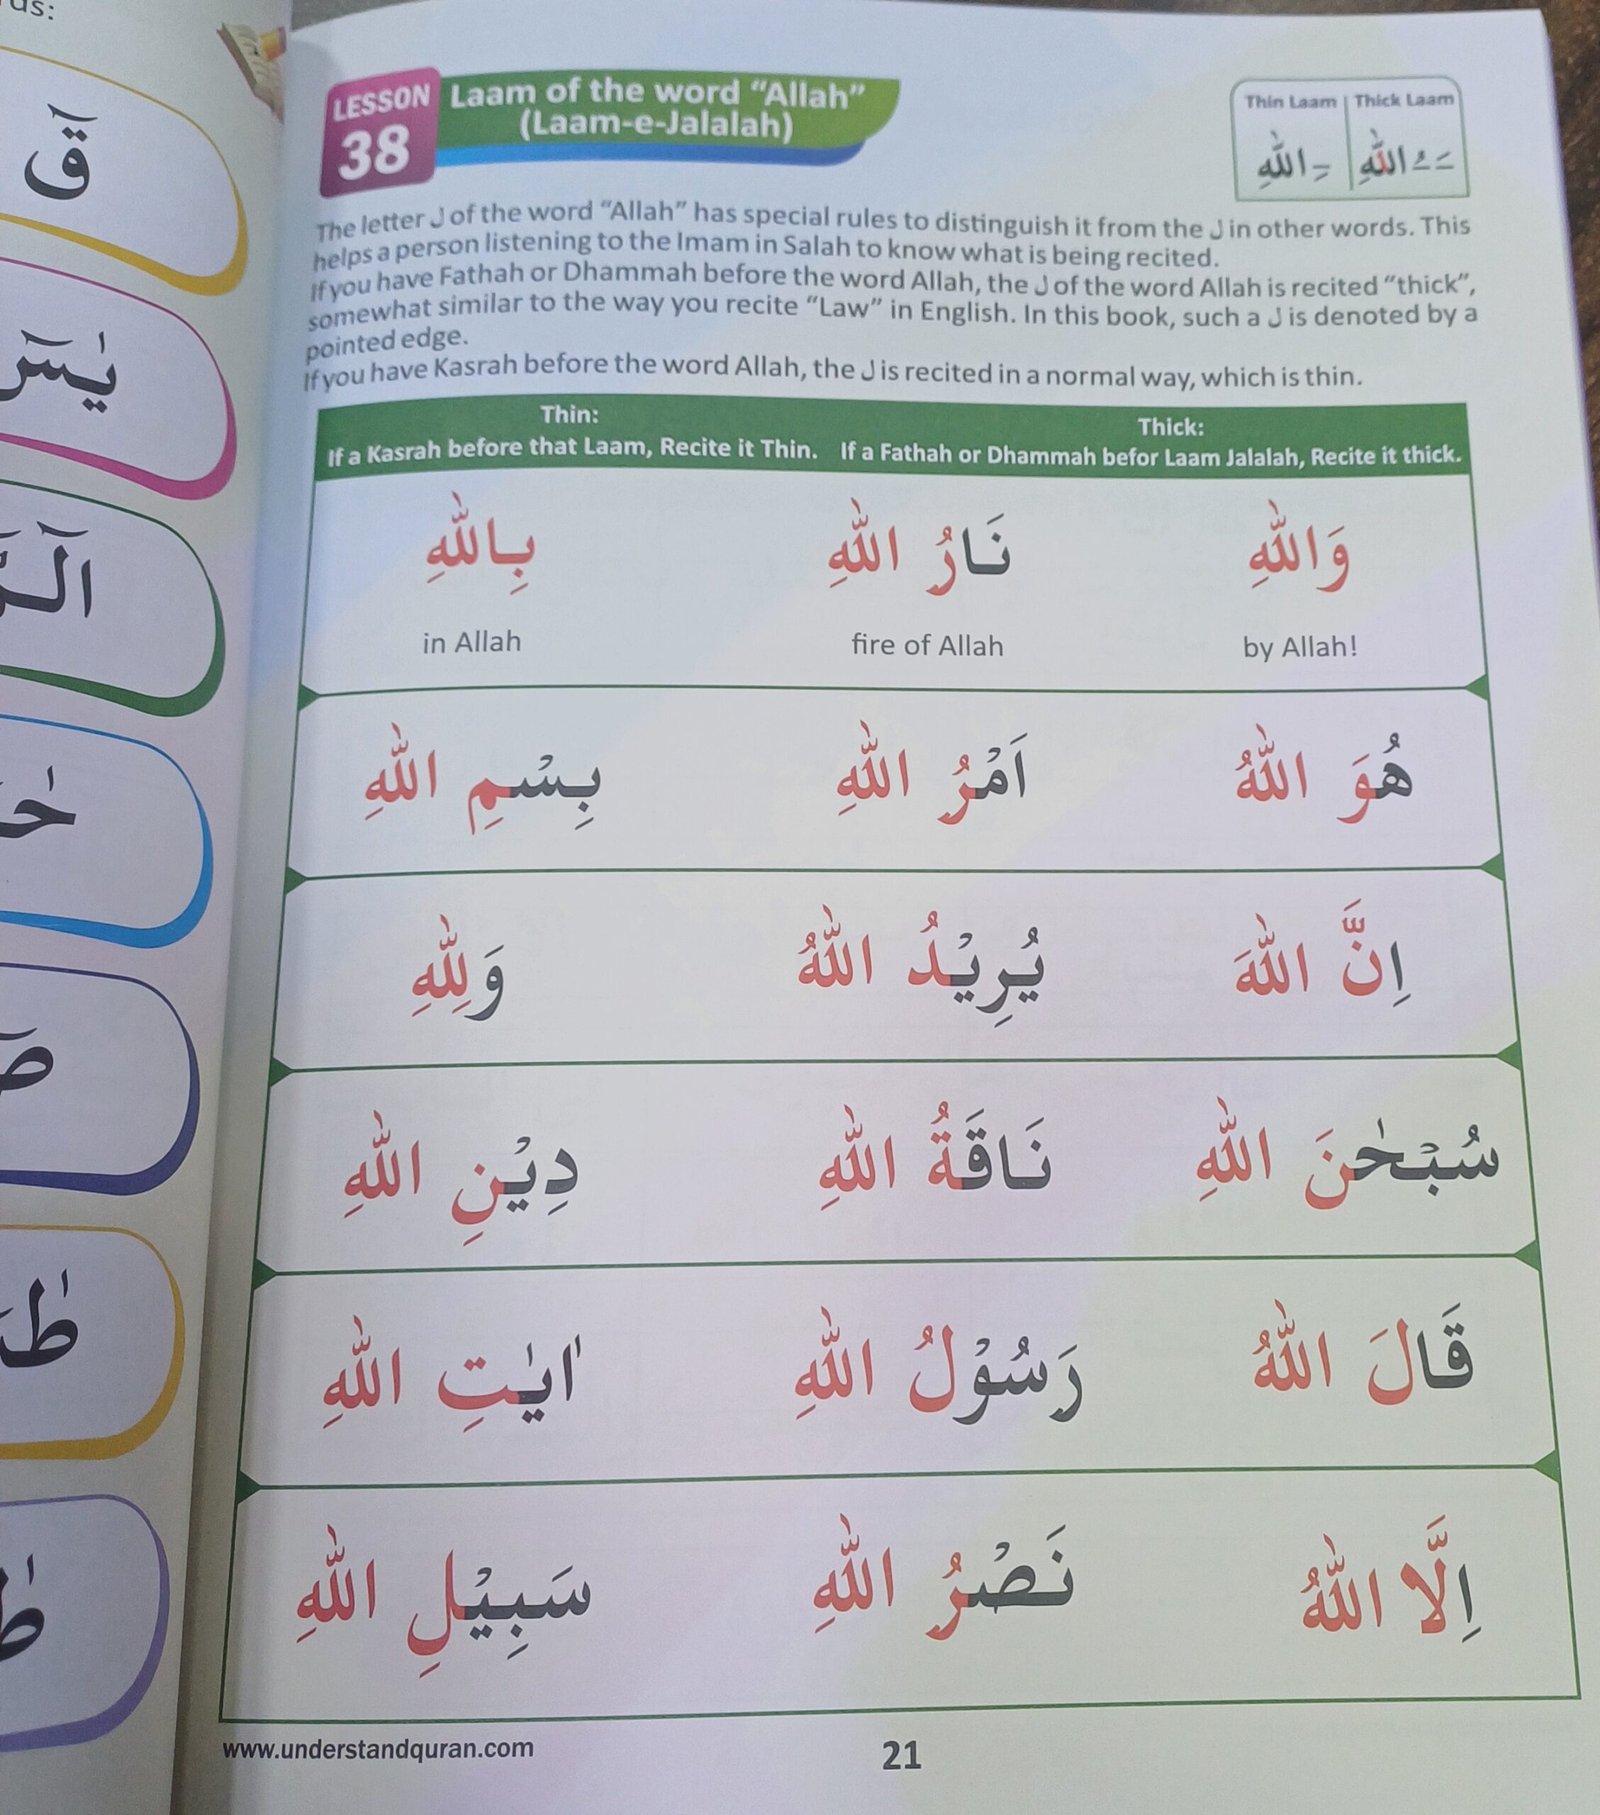 قٓ
يٰسٓ
LESSON 38
Laam of the word “Allah”
(Laam-e-Jalalah)
Thin Laam | Thick Laam
The letter ل of the word “Allah” has special rules to distinguish it from the ل in other words. This
helps a person listening to the Imam in Salah to know what is being recited.
If you have Fathah or Dhammah before the word Allah, the ل of the word Allah is recited “thick”,
somewhat similar to the way you recite “Law” in English. In this book, such a ل is denoted by a
pointed edge.
If you have Kasrah before the word Allah, the ل is recited in a normal way, which is thin.
Thin:
If a Kasrah before that Laam, Recite it Thin.
Thick:
If a Fathah or Dhammah befor Laam Jalalah, Recite it thick.
وَاللّٰهِ نَارُ اللّٰهِ بِاللّٰهِ
by Allah! fire of Allah in Allah
هُوَ اللّٰهُ اَمْرُ اللّٰهِ بِسْمِ اللّٰهِ
اِنَّ اللّٰهَ يُرِيْدُ اللّٰهُ وَلِلّٰهِ
سُبْحٰنَ اللّٰهِ نَاقَةُ اللّٰهِ دِيْنِ اللّٰهِ
قَالَ اللّٰهُ رَسُوْلُ اللّٰهِ اٰيٰتِ اللّٰهِ
اِلَّا اللّٰهُ نَصْرُ اللّٰهِ سَبِيْلِ اللّٰهِ
www.understandquran.com
21